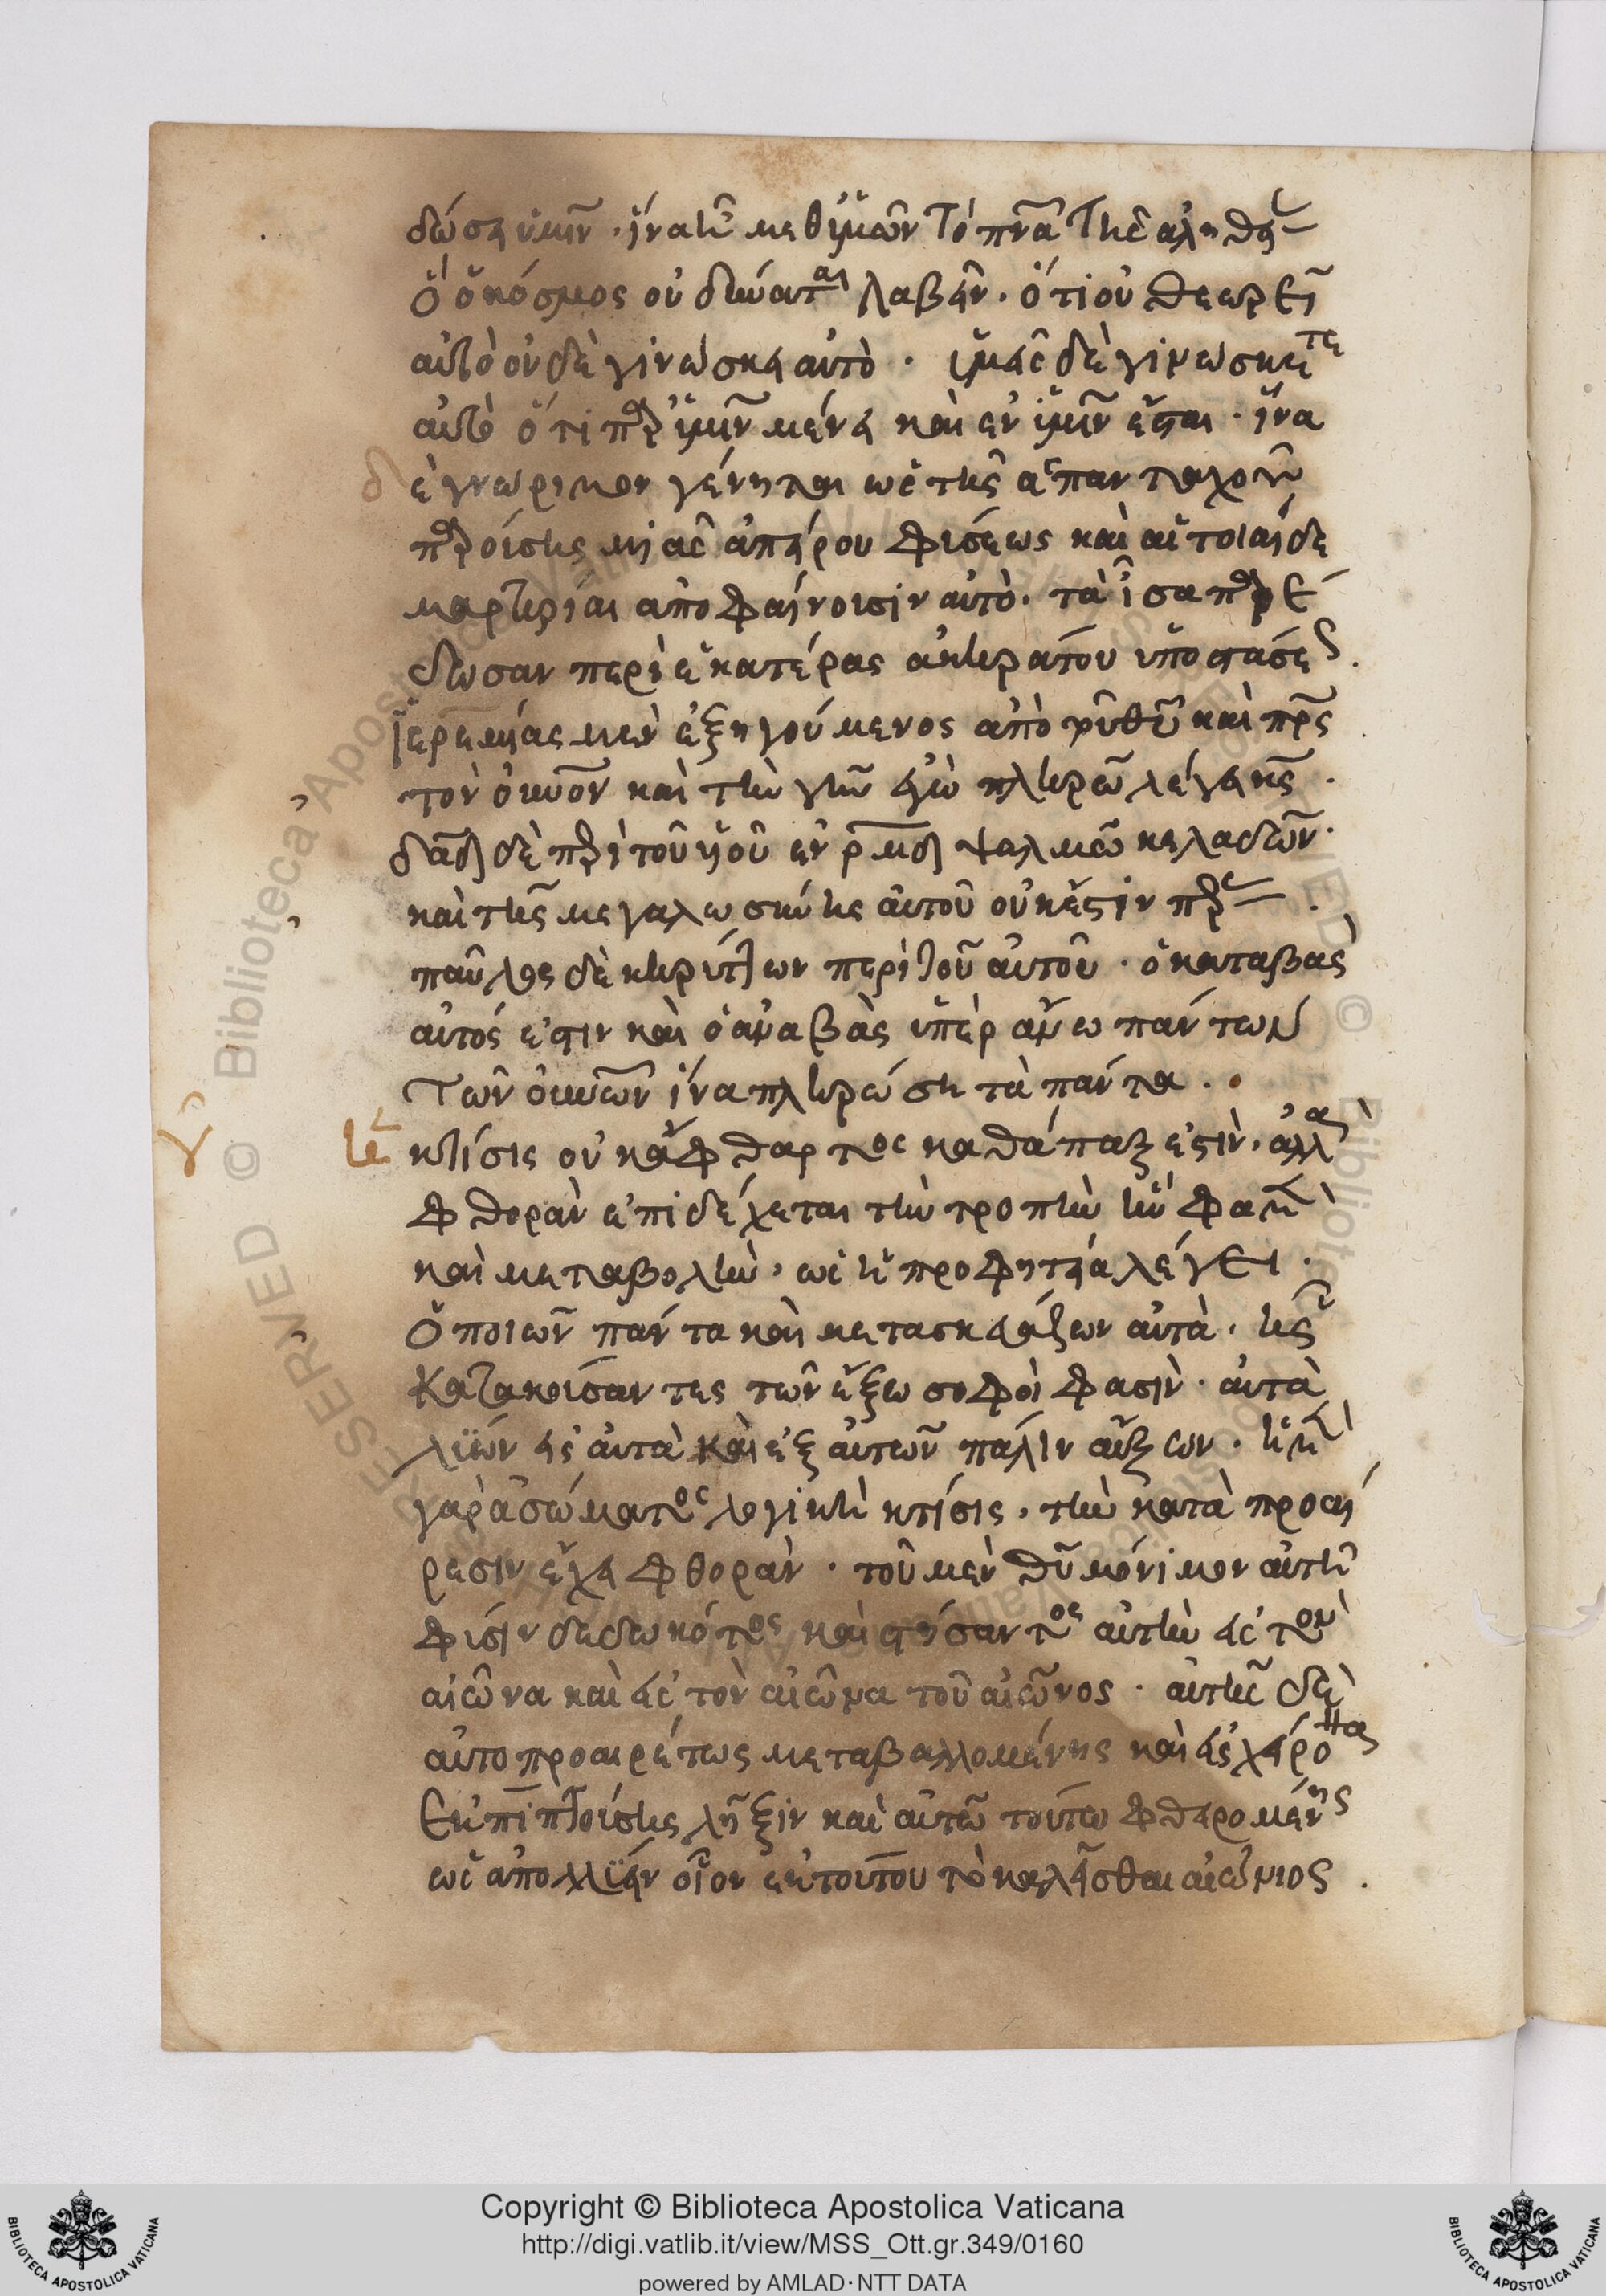 δώσει ὑμῖν · ἵνα ἦ μεθ' ὑμῶν τὸ πνα τῆς ἀληθεί
ὃ ὁ κόσμος οὐ δύναται λαβεῖν · ὅτι οὐ θεωρεῖ
αὐτὸ οὐδὲ γινώσκει αὐτὸ · ὑμεῖς δὲ γινώσκετε
αὐτὸ ὅτι παρ' ὑμῖν μένει καὶ ἐν ὑμῖν ἔσται · ἵνα
δὲ γνώριμον γένηται ὡς τῆς ἁπανταχοῦ
παρούσης μιᾶς ἀπείρου φύσεως καὶ αἱ τοιαίδε
μαρτυρίαι ἀποφαίνουσιν αὐτὸ · τὰ ἴσα παρέ
δωσαν περὶ ἑκατέρας ἀκηράτου ὑποστάσεως .
ἱερεμίας μὲν ἐξηγούμενος ἀπὸ τοῦ θυ καὶ πρς
τὸν οὐνον καὶ τὴν γῆν ἐγὼ πληρῶ λέγει κς .
δαδ δὲ περὶ τοῦ υἱοῦ ἐν ρμδ ψαλμῶ κελαδῶν ·
καὶ τῆς μεγαλωσύνης αὐτοῦ οὐκ ἔστιν πέρας .
παῦλος δὲ κηρύττων περὶ τοῦ αὐτοῦ · ὁ καταβὰς
αὐτός ἐστιν καὶ ὁ ἀναβὰς ὑπὲρ ἄνω πάντων
τῶν οὐνῶν ἵνα πληρώση τὰ πάντα . .
κτίσις οὐκ ἄφθαρτος καθάπαξ ἐστὶν · ἀλλὰ
φθορὰν ἐπιδέχεται τὴν τροπὴν ἢ φαμὲν
καὶ μεταβολὴν · ὡς ἡ προφητεία λέγει ·
ὁ ποιῶν πάντα καὶ μετασκευάζων αὐτὰ · ἧς
κατακούσαντες τῶν ἔξω σοφοὶ φασὶν · αὐτὰ
λύων εἰς αὐτὰ καὶ ἐξ αὐτῶν πάλιν αὔξων · ἡ μὲν
γὰρ ἀσώματος λογικὴ κτίσις · τὴν κατὰ προαί
ρεσιν ἔχει φθορὰν · τοῦ μὲν θυ μόνιμον αὐτῆ
φύσιν δεδωκότος καὶ στήσαντος αὐτὴν εἰς τὸν
αἰῶνα καὶ εἰς τὸν αἰῶνα τοῦ αἰῶνος · αὐτῆς δὲ
αὐτοπροαιρέτως μεταβαλλομένης καὶ εἰς χείρονα
ἐκπιπτούσης λῆξιν καὶ αὐτῶ τούτω φθειρομένης
ὡς ἀπολλύειν οἷον ἐκ τούτου τὸ καλεῖσθαι αἰώνιος .
Copyright © Biblioteca Apostolica Vaticana
http://digi.vatlib.it/view/MSS_Ott.gr.349/0160
powered by AMLAD·NTT DATA
BIBLIOTECA APOSTOLICA VATICANA
BIBLIOTECA APOSTOLICA VATICANA